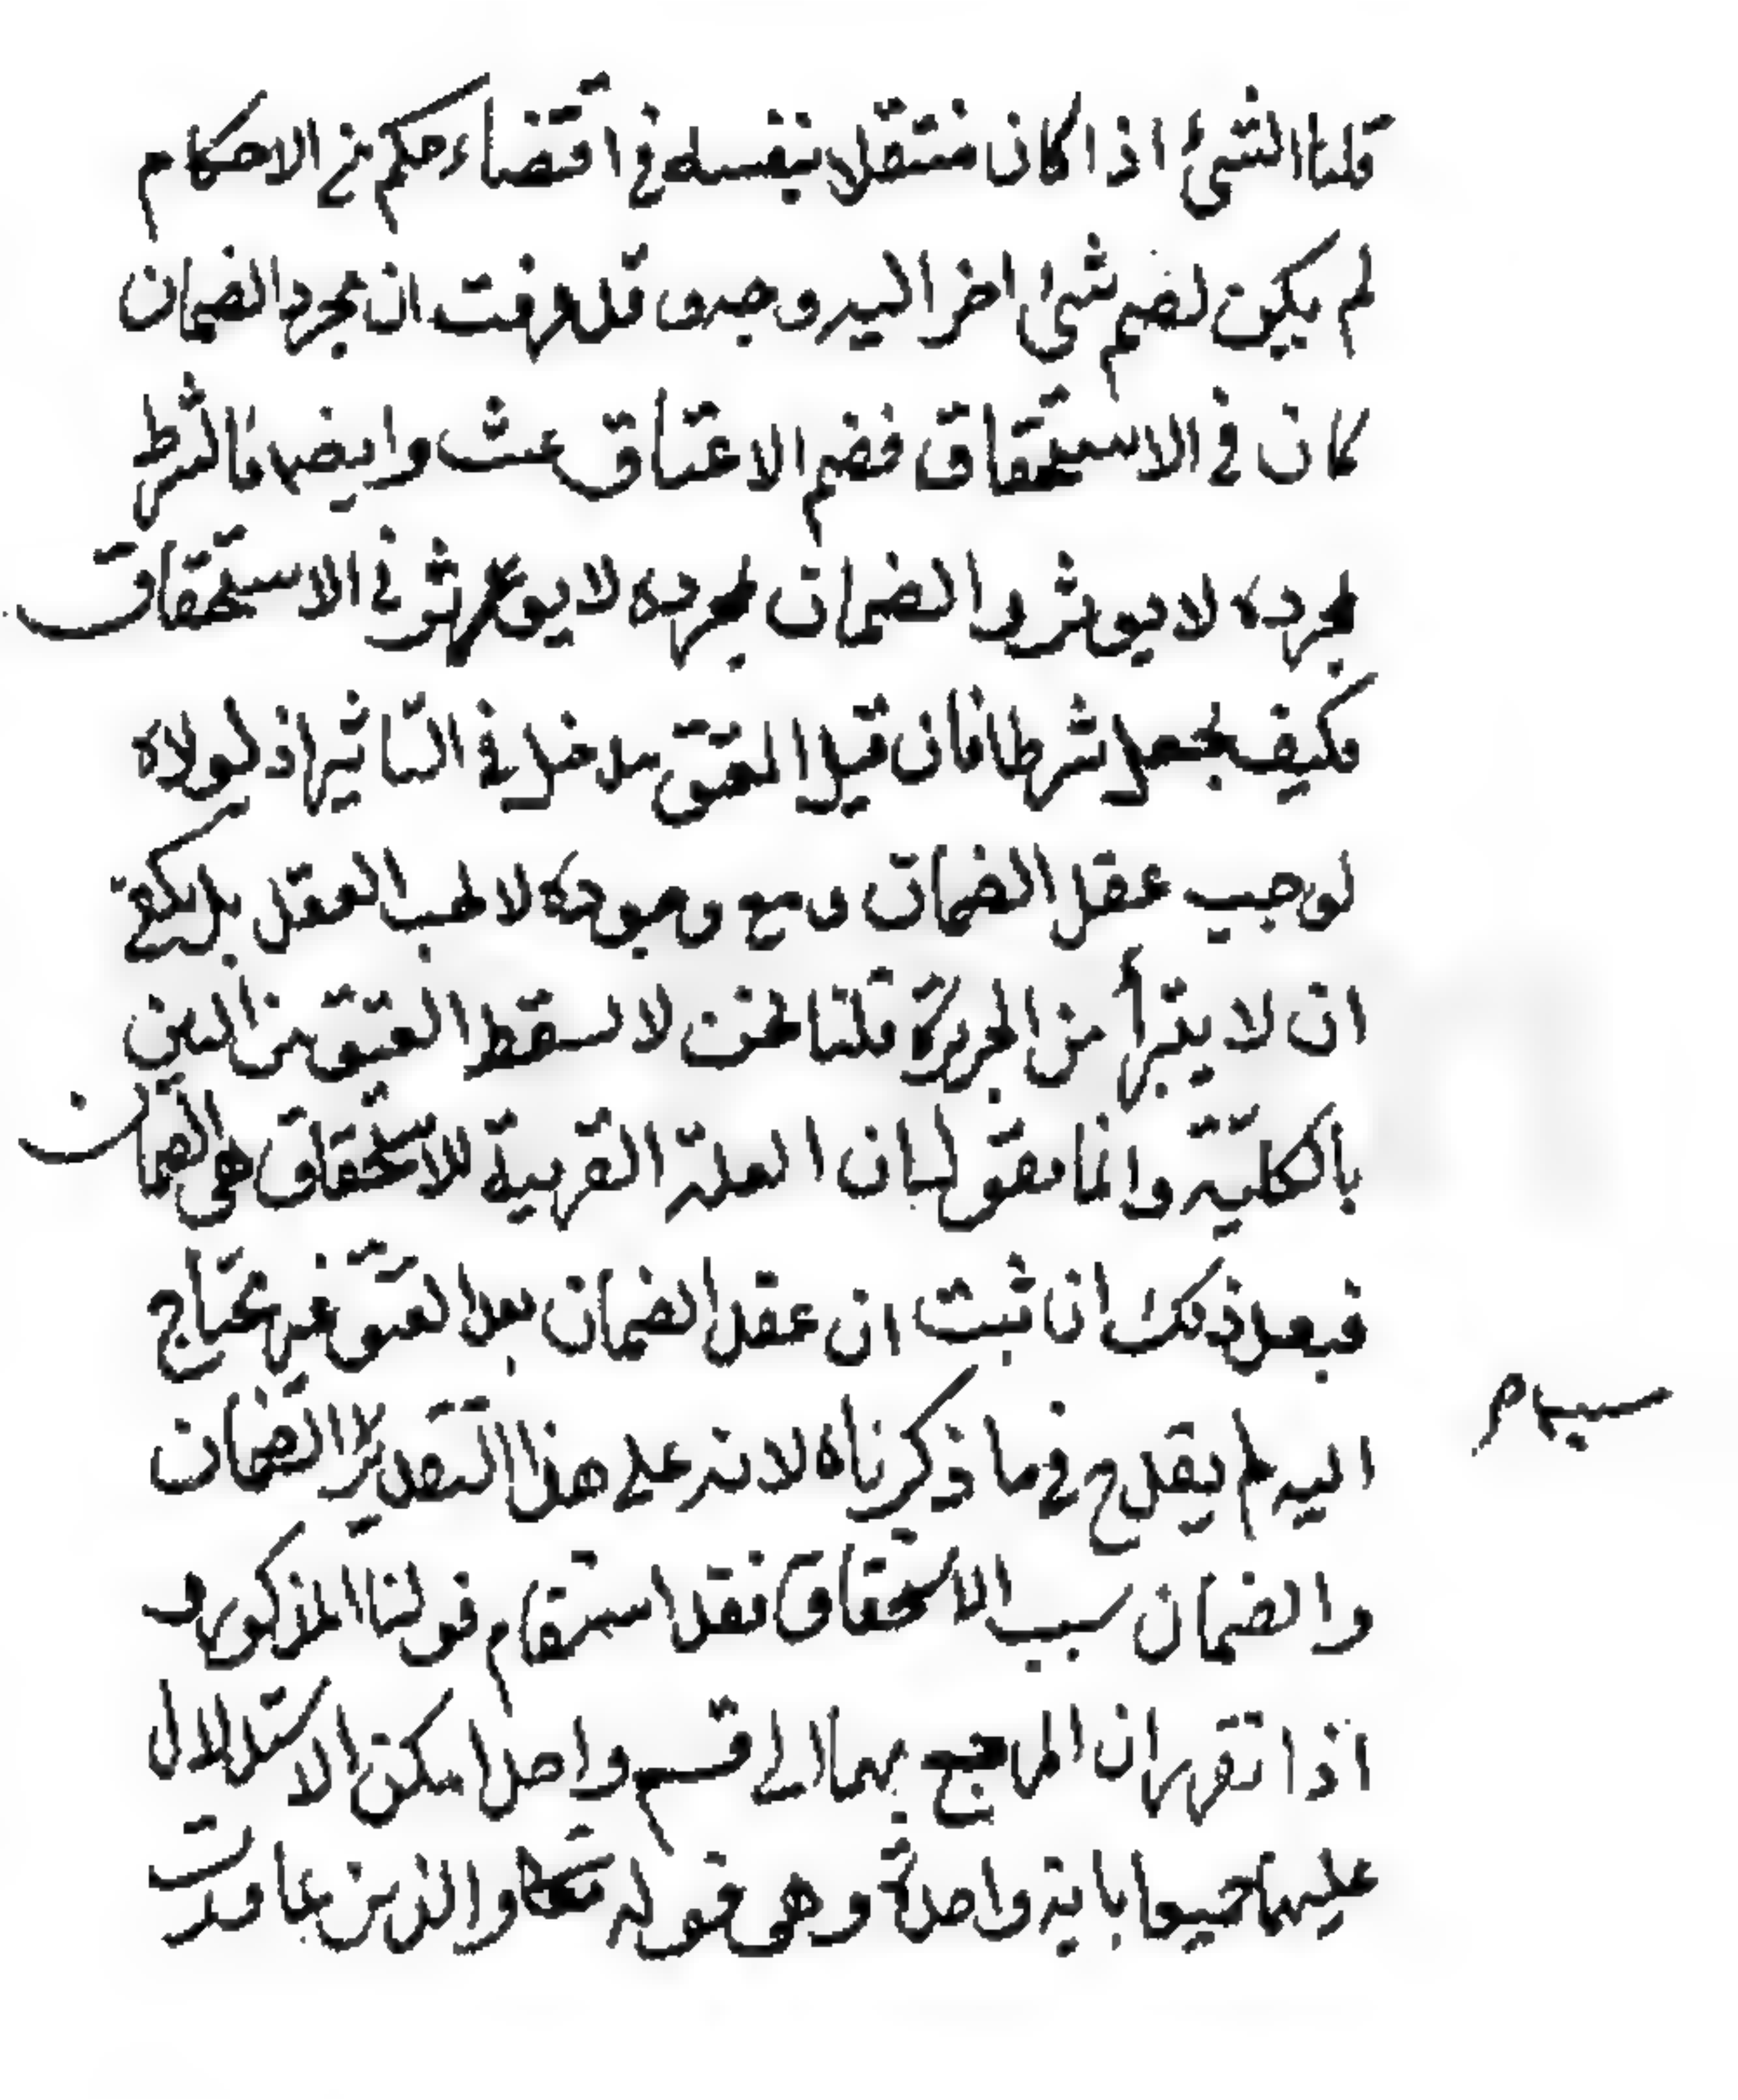 قلنا الشيئ اذا كان منتقلا بنفسه في اقتضاء حكم من الاحكام
لم يكن لضم شئ اخر اليه وجه وقد عرفت ان مجرد الضمان
كان في الاستحقاق فضم الاعتاق عبث وايضا فالشرط
بمجرده لا يوثر والضمان بمجرده لا يوثر في الاستحقاق
فكيف يجعل شرطا فان قيل العتق مدخل في التاثير اذ لولاه
لوجب عقل الضمان ومع وجوده لا يجب العقل بل يكفي
ان لا يتبرأ من الجريرة قلنا نحن لا نسقط العتق من البين
بالكليّة وانما نقول بان العلة القريبة للاستحقاق هو الضمان
فبعد ذلك ان ثبت ان عقد الضمان بعد العتق غير محتاج
سيام
اليه لم يقدح فيما ذكرناه لانه على هذا التقدير الضمان
والضمان سبب الاستحقاق فقد استقام قولنا المذكور و
اذا تقرر ان المرجع بهما الى قسم واحد امكن الاستدلال
عليهما جميعا باية واحدة وهو قوله تعالى والذين عاقدت